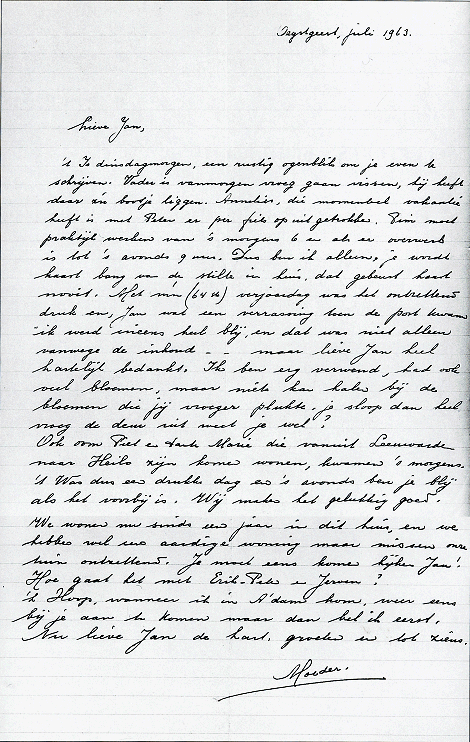 Oegstgeest, juli 1963.
Lieve Jan,
't Is dinsdagmorgen, een rustig ogenblik om je even te
schrijven. Vader is vanmorgen vroeg gaan vissen, hij heeft
daar z'n bootje liggen. Annelies, die momenteel vakantie
heeft is met Peter er per fiets op uit getrokken. Pim moet
praktijk werken van 's morgens 6 en als er overwerk
is tot 's avonds 9 uur. Dus ben ik alleen, je wordt
haast bang van de stilte in huis, dat gebeurt haast
nooit. Met m'n (64 ste) verjaardag was het ontzettend
druk en, Jan wat een verrassing toen de post kwam
ik werd ineens heel blij, en dat was niet alleen
vanwege de inhoud - - maar lieve Jan heel
hartelijk bedankt. Ik ben erg verwend, had ook
veel bloemen, maar niets kan halen bij de
bloemen die jij vroeger plukte. je sloop dan heel
vroeg de deur uit weet je wel?
Ook oom Piet en tante Marie die vanuit Leeuwarden
naar Heilo zijn komen wonen, kwamen 's morgens.
't Was dus een drukke dag en 's avonds ben je blij
als het voorbij is. Wij maken het gelukkig goed.
We wonen nu sinds een jaar in dit huis, en we
hebben wel een aardige woning maar missen onze
tuin ontzettend. Je moet eens komen kijken Jan!
Hoe gaat het met Erik-Peter en Jeroen?
'k Hoop, wanneer ik in A'dam kom, weer eens
bij je aan te komen maar dan bel ik eerst.
Nu lieve Jan de hart. groeten en tot ziens.
Moeder.